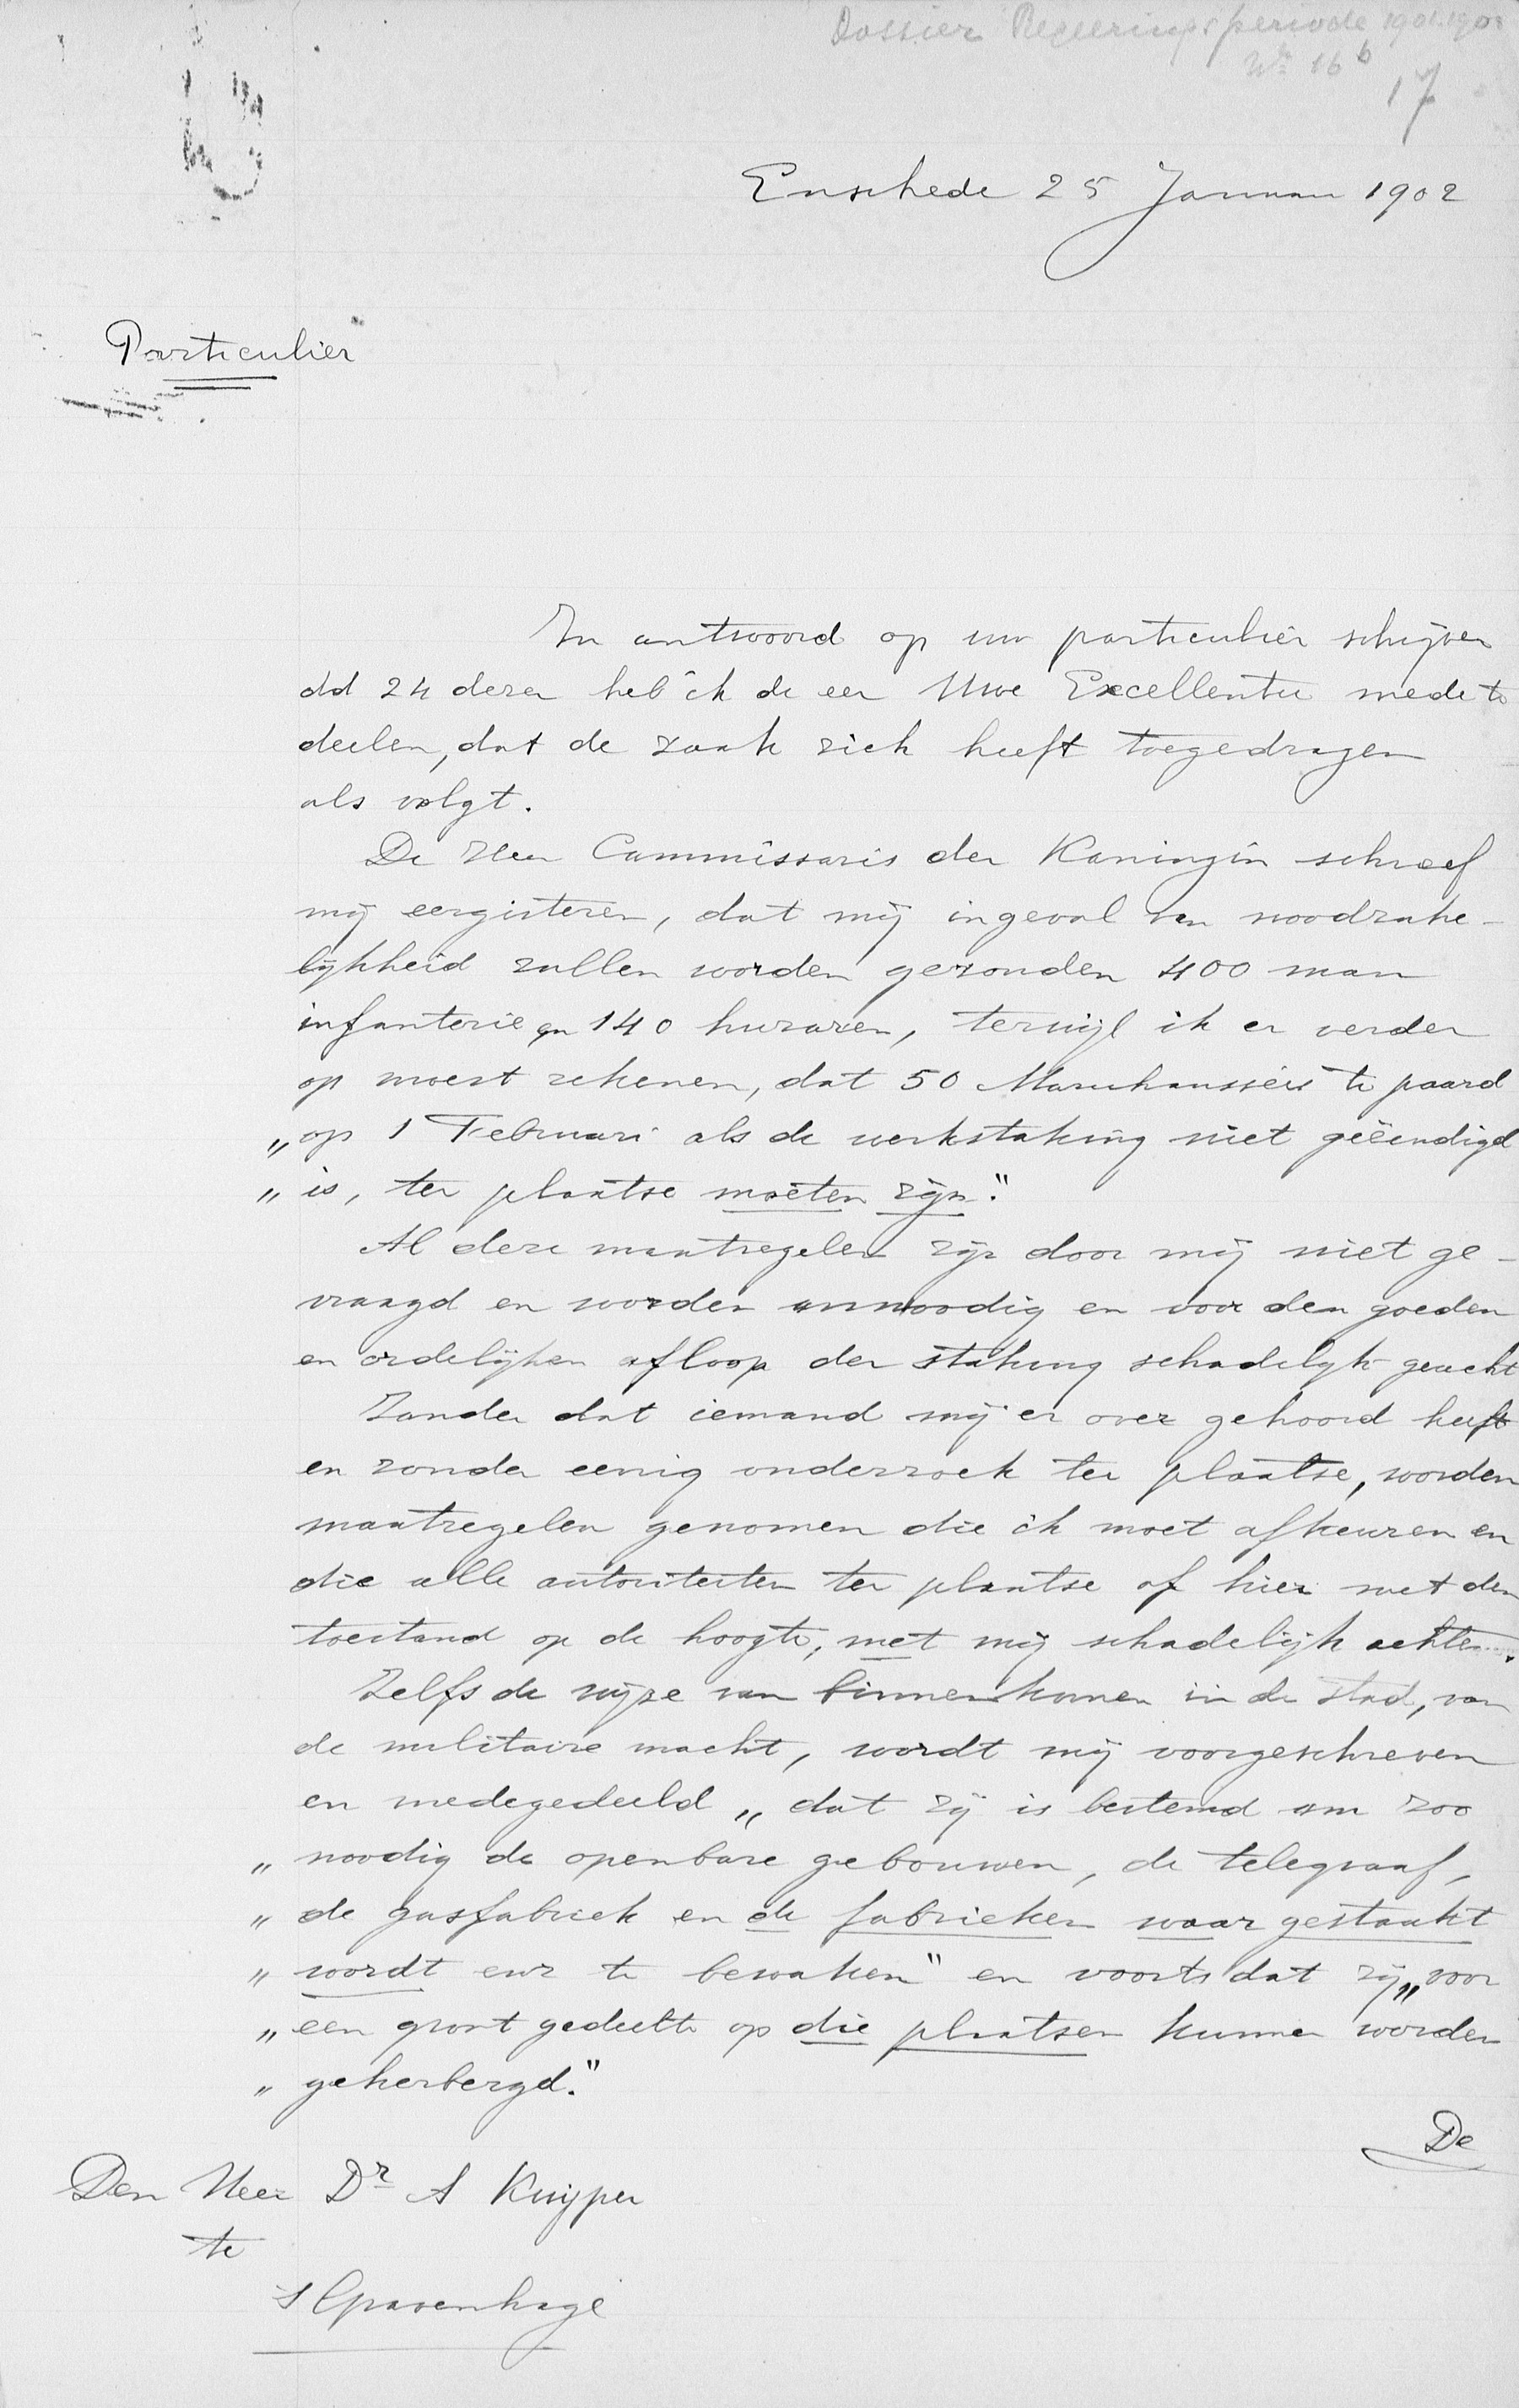 Dossier Regeeringsperiode 1901-190
No 16 b
17
Enschede 25 Januari 1902
Particulier
In antwoord op uw particulier schrijven
dd 24 dezer heb ik de eer Uwe Excellentie mede te
deelen, dat de zaak zich heeft toegedragen
als volgt.
De Heer Commissaris der Koningin schreef
mij eergisteren, dat mij ingeval van noodzake-
lijkheid zullen worden gezonden 400 man
infanterie en 140 huzaren, terwijl ik er verder
op moest rekenen, dat 50 Marechaussées te paard
„ op 1 Februari als de werkstaking niet geëindigd
„ is, ter plaatse moeten zijn."
Al deze maatregelen zijn door mij niet ge-
vraagd en worden onnoodig en voor den goeden
en ordelijken afloop der staking schadelijk geacht
Zonder dat iemand mij er over gehoord heeft
en zonder eenig onderzoek ter plaatse, worden
maatregelen genomen die ik moet afkeuren en
die alle autoriteiten ter plaatse of hier met den
toestand op de hoogte, met mij schadelijk achten.
Zelfs de wijze van binnenkomen in de stad, van
de militaire macht, wordt mij voorgeschreven
en medegedeeld „ dat zij is bestemd om zoo
„ noodig de openbare gebouwen, de telegraaf,
„ de gasfabriek en de fabrieken waar gestaakt
„ wordt enz te bewaken" en voorts dat zij „ voor
„ een groot gedeelte op die plaatsen kunnen worden
„ geherbergd."
De
Den Heer Dr A Kuyper
te
's Gravenhage